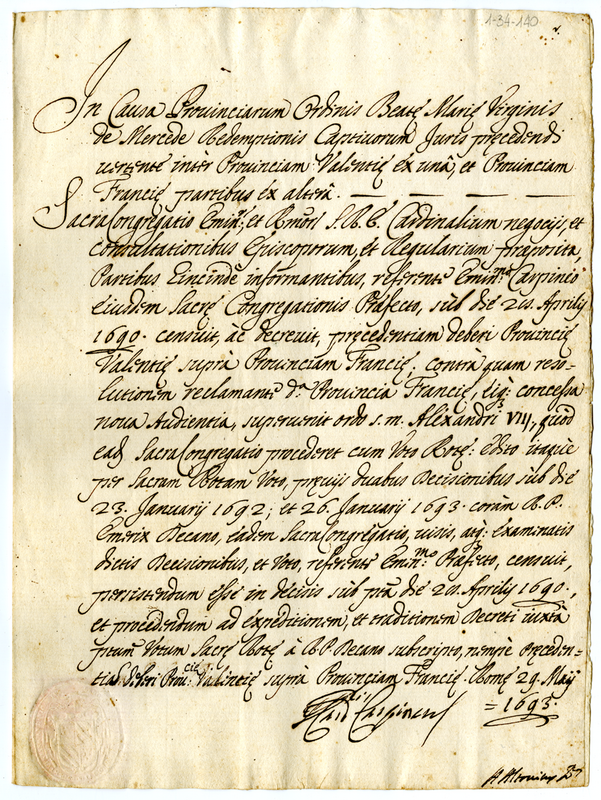 1-34-140
In Causa Prouinciarum Ordinis Beatę Marię Virginis
de Mercede Redemptionis Captiuorum Juris pręcedendi
uertente intèr Prouinciam Valentię ex unâ, et Prouinciam
Francię partibus ex alterâ.
Sacra Congregatio Emin: et Rmōrl S. R. E. Cardinalium negocijs, et
consultationibus Episcoporum, et Regularium pręposita,
Partibus hincindè informantibus, referente Emin.mo Carpineo
eiusdem Sacrę Congregationis Pręfecto, sub die 20. Aprilis
1690. censuit, ac decreuit, pręcedentiam deberi Prouincię
Valentię suprà Prouinciam Francię; contrà quam reso-
lutionem reclamante d.a Prouincia Francię, eiq: concessa
noua Audientia, superuenit ordo s. m. Alexandri VIII, quòd
ead Sacra Congregatio procederet cum Voto Rotę: edito itaque
per Sacram Rotam Voto, pręuijs duabus Decisionibus sub die
23. Januarij 1692; et 26. Januarij 1693. coràm R. P.
Emerix Decano, eadem Sacra Congregatio, uisis, atq: examinatis
dictis Decisionibus, et Voto, referente Emin:mo Pręfecto, censuit,
persistendum esse in decisis sub ptā die 20. Aprilis 1690.,
et procedendum ad expeditionem, et traditionem Decreti iuxtà
ptum Votum Sacrę Rotę à R. P. Decano subscripto, nempè Pręceden=
tiam deberi Prou:cię Valentię suprà Prouinciam Francię. Romę 29. Maij
= 1693.